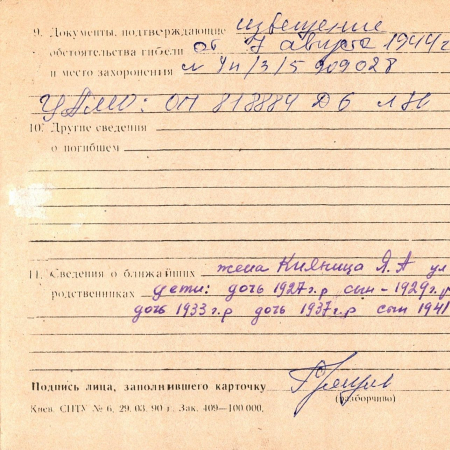 9. Документы, подтверждающие извещение
обстоятельства гибели от 7 августа 1944 г
и место захоронения № 4н/3/5 909028
ЦАМО: ОП 818884 Д 6
10. Другие сведения
о погибшем
11. Сведения о ближайших жена Кияница Я. А ул
родственниках дети: дочь 1927 г.р сын - 1929 г.р
дочь 1933 г.р дочь 1937 г.р сын 1941
Подпись лица, заполнившего карточку
(разборчиво)
Киев. СПТУ № 6, 29. 03. 90 г. Зак. 409—100 000.